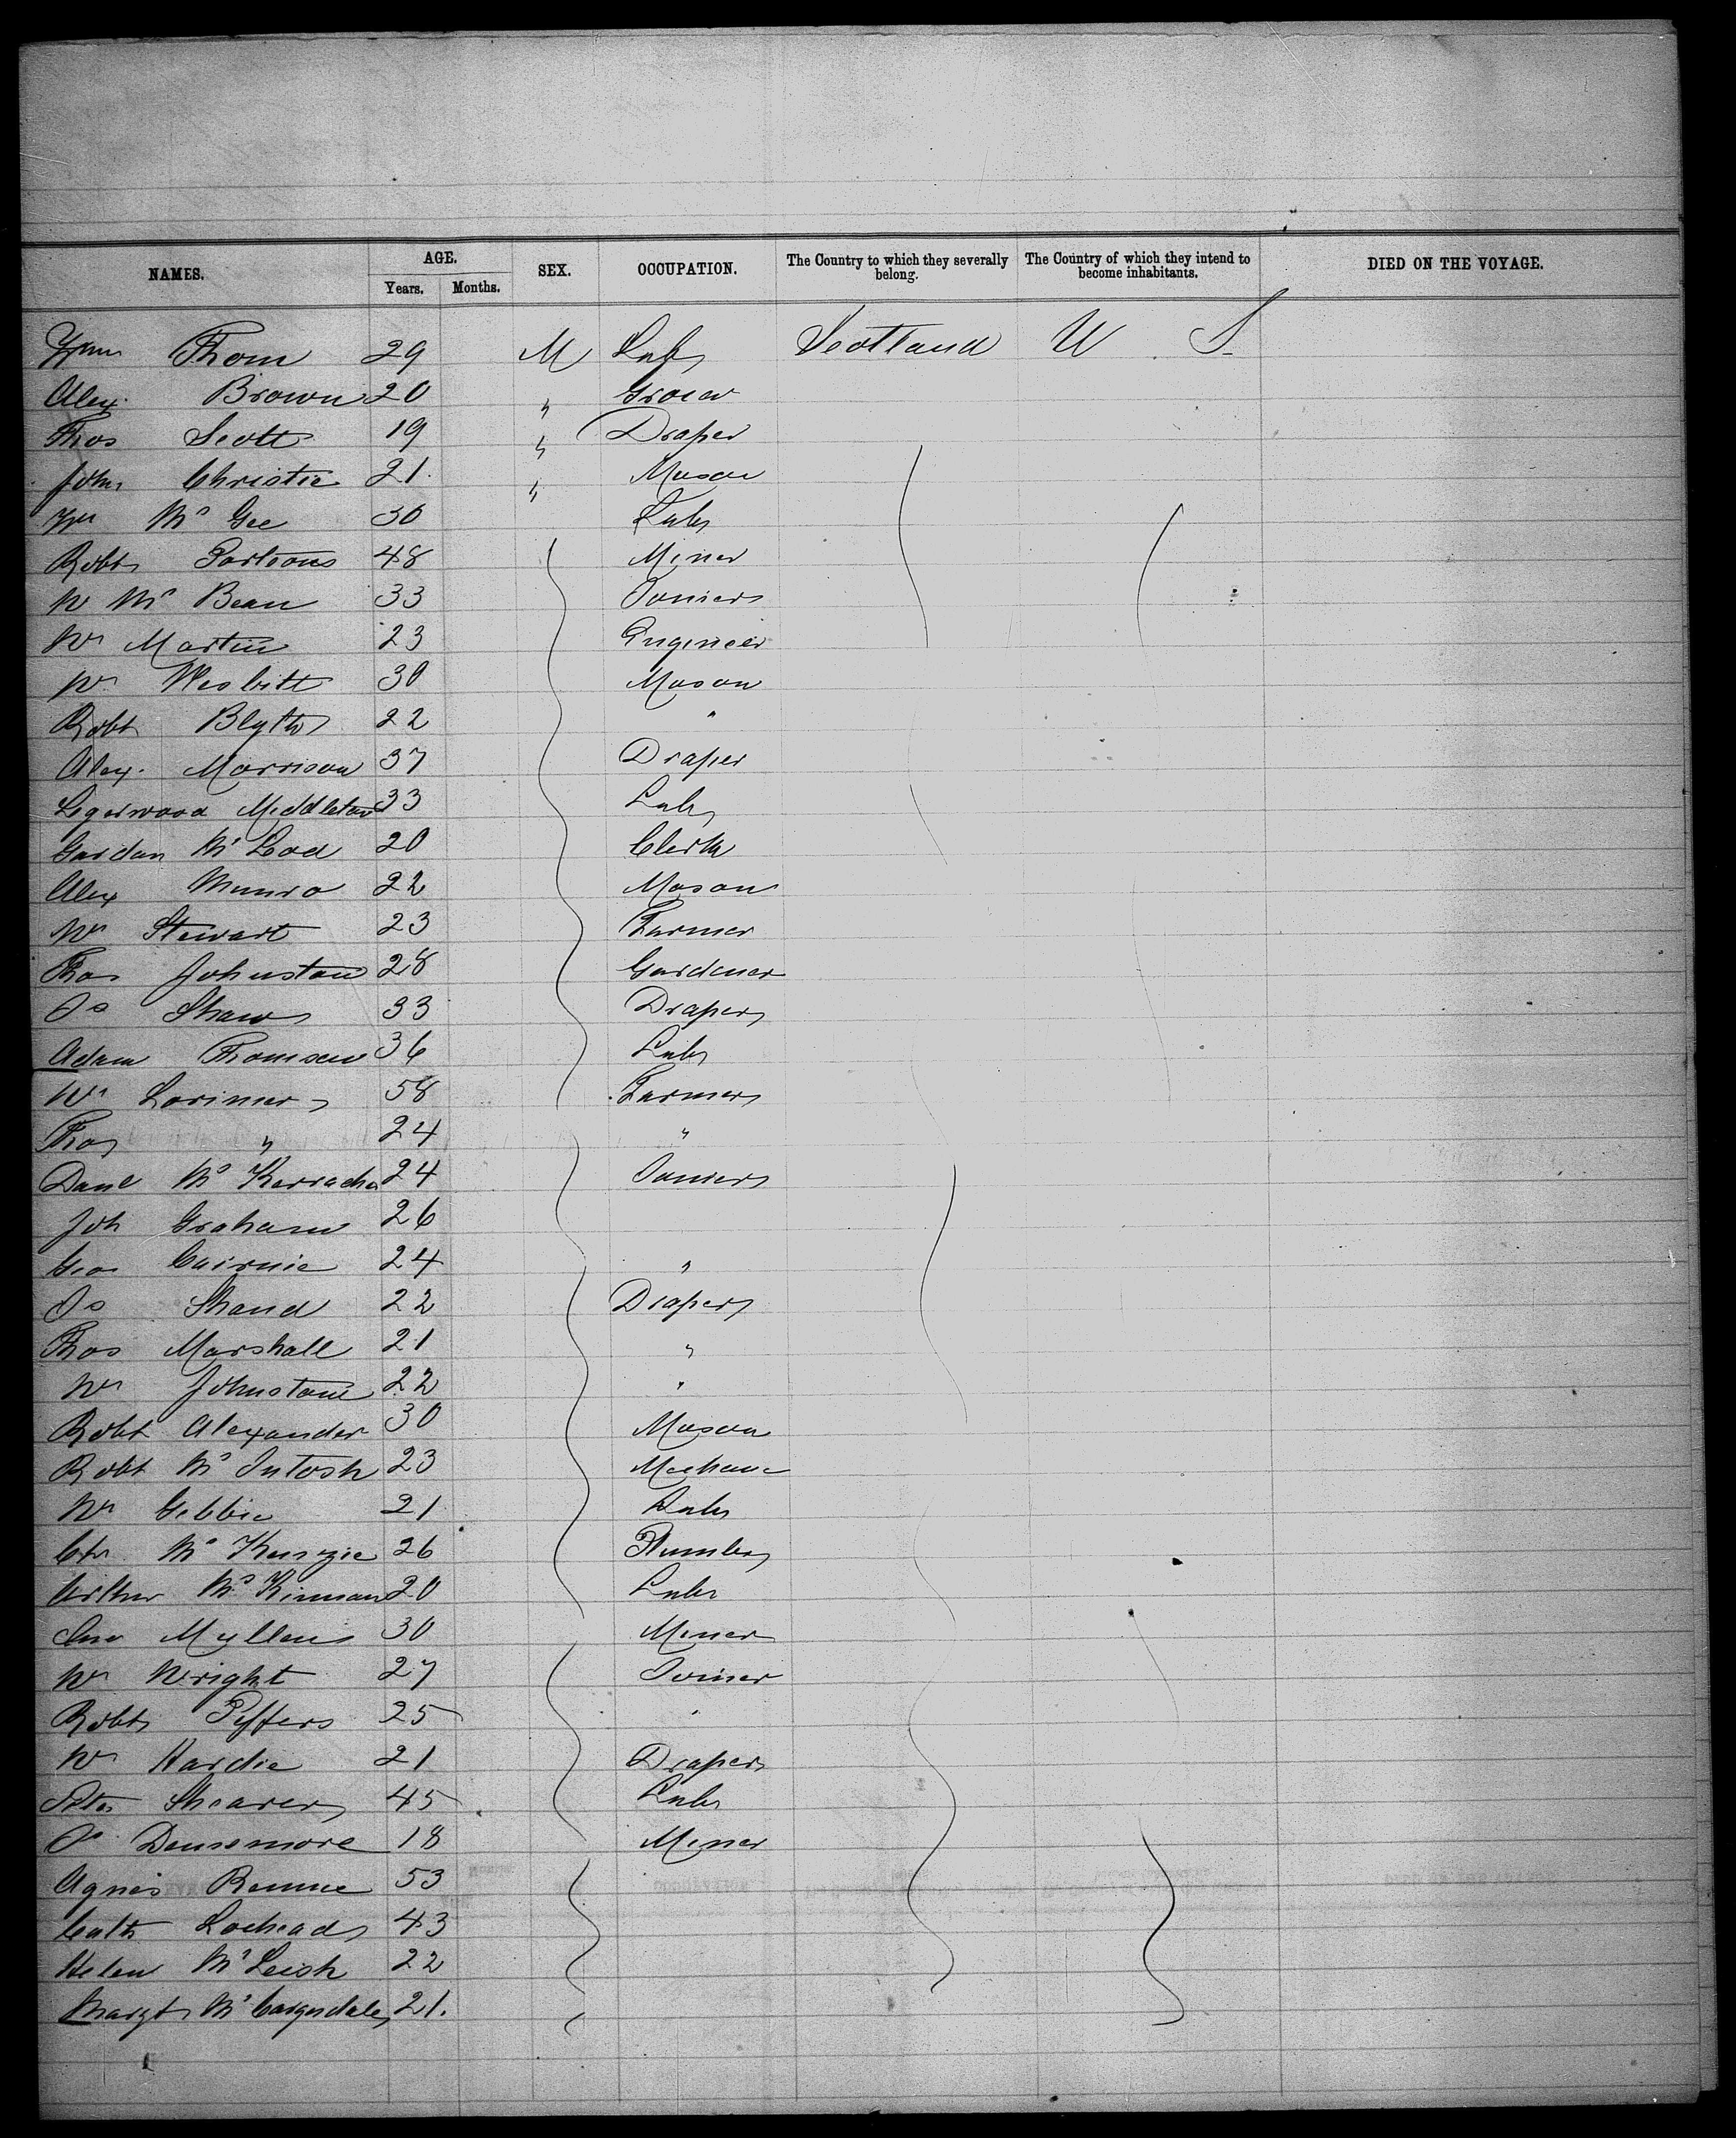 NAMES. AGE. Years. Months. SEX. OCCUPATION. The Country to which they severally belong. The Country of which they intend to become inhabitants. DIED ON THE VOYAGE.
Wm Thom 29 M Labr Scotland U. S.
Alex. Brown 20 " Grocer
Thos Scott 19 " Draper
John Christie 21 " Mason
Wm Mc Gee 30 Labr
Robt 48 Miner
W Mc Bean 33 Joiner
Wm Martin 23 Engineer
Wm Nesbitt 30 Mason
Robt Blyth 22 "
Alex. Morrison 37 Draper
Legerwood Middleton 33 Labr
Gordon Mc Leod 20 Clerk
Alex Munro 22 Mason
Wm Stewart 23 Farmer
Thos Johnston 28 Gardener
Js Shaw 33 Draper
Adam Thomson 36 Labr
Wm Lorimer 58 Farmer
Thos " 24 "
Danl Mc Kerracher 24 Joiner
Joh Graham 26
Geo Cairnie 24 "
Js Shand 22 Draper
Thos Marshall 21 "
Wm Johnstone 22 "
Robt Alexander 30 Mason
Robt Mc Intosh 23 Mechanic
Wm Gebbie 21 Labr
Chr Mc Kenzie 26 Plumber
Arthur Mc Kinnan 20 Labr
Jno Mullen 30 Miner
Wm Wright 27 Joiner
Robt Peffers 25 "
Wm Hardie 21 Draper
Peter Shearer 45 Labr
Js Densmore 18 Miner
Agnes Rennie 53
Cath Lochead 43
Helen Mc Leish 22
Margt 21.